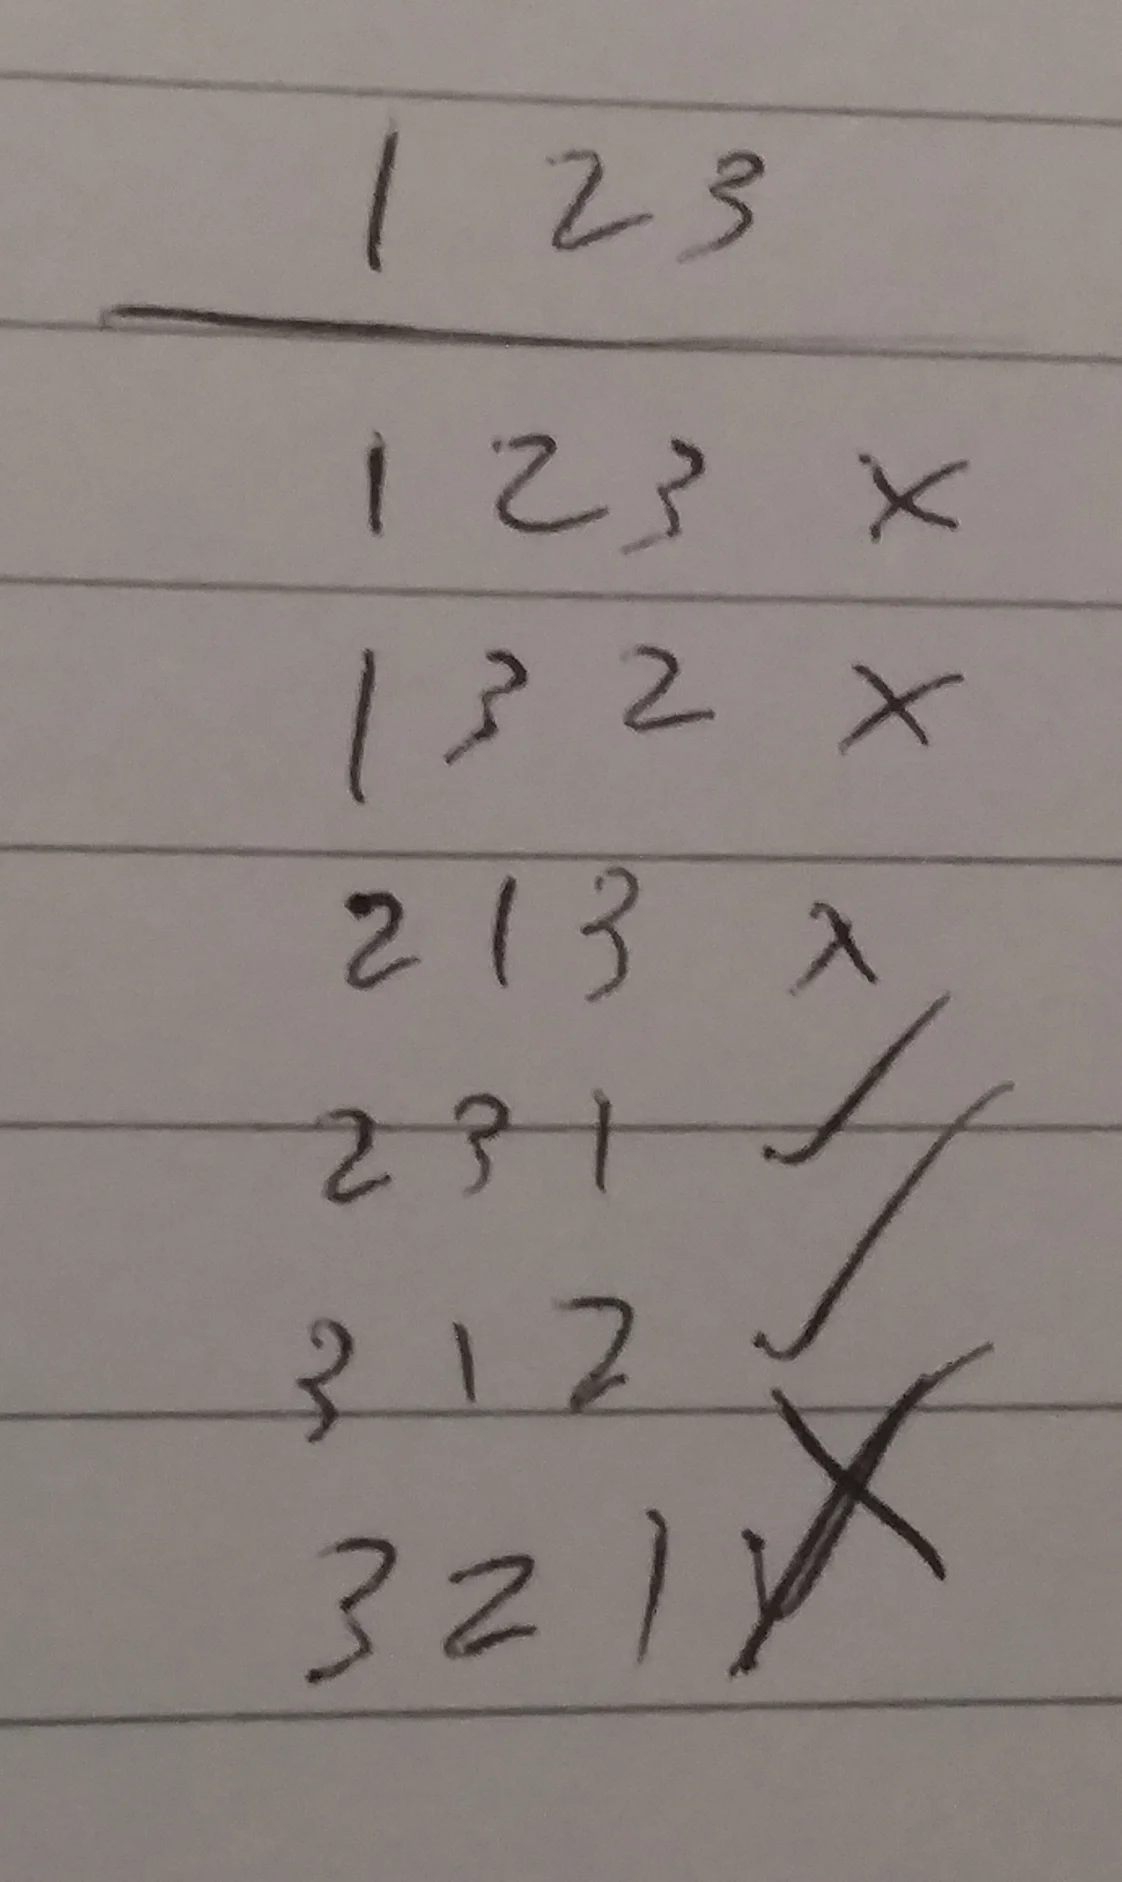 1 2 3
1 2 3 x
1 3 2 x
2 1 3 x
2 3 1 ✓
3 1 2 ✓
3 2 1 X